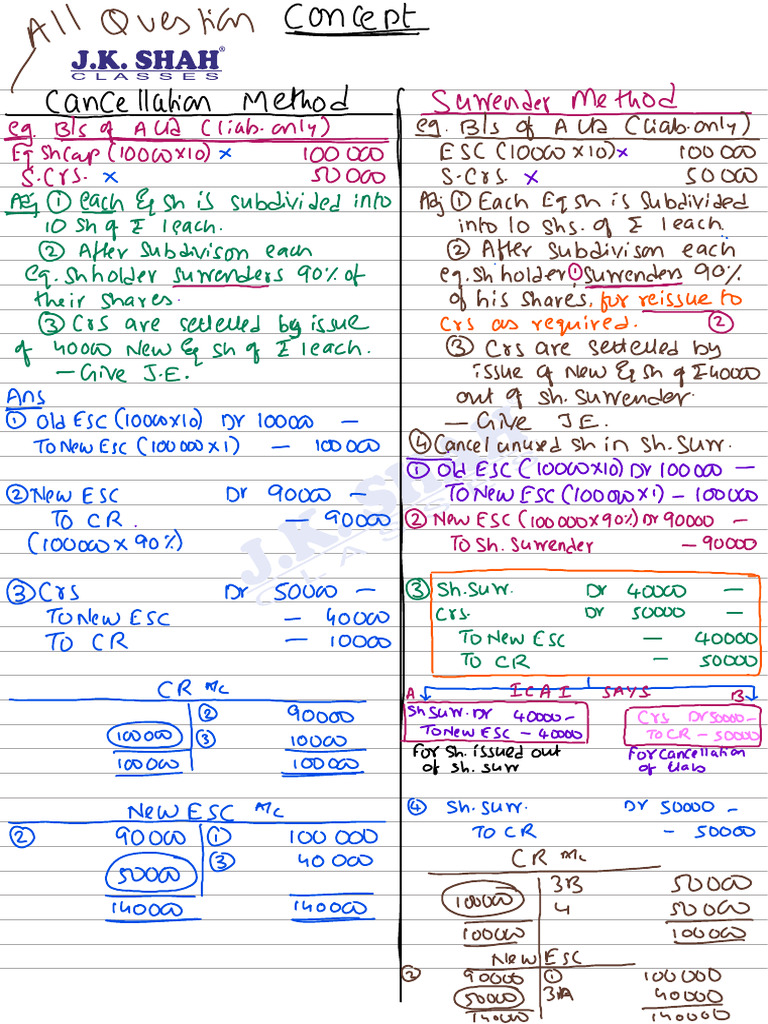 All Question Concept
J.K. SHAH®
CLASSES
Cancellation Method
eg. B/s of A Ltd (liab. only)
Eq Sh Cap (10000x10) x 100 000
S. Crs. x 50 000
Adj ① Each Eq sh is subdivided into
10 Sh of ₹ 1 each.
② After Subdivison each
eq. sh holder surrenders 90% of
their shares.
③ Crs are settelled by issue
of 40000 New Eq sh of ₹ 1 each.
— Give J.E.
Ans
① Old ESC (10000x10) Dr 100000 —
To New ESC (100 000x1) — 100000
② New ESC Dr 90000 —
To CR. — 90000
(100000 x 90%)
③ Crs Dr 50000 —
To New ESC — 40000
To CR — 10000
CR A/c
② 90000
100000 ③ 10000
100000 100000
New ESC A/c
② 90000 ① 100 000
50000 ③ 40 000
140000 140000
Surrender Method
eg. B/s of A Ltd (liab. only)
ESC (10000x10) x 100 000
S. Crs. x 50 000
Adj ① Each Eq sh is subdivided
into 10 shs. of ₹ 1 each
② After Subdivison each
eq. sh'holder ① surrenders 90%
of his shares, for reissue to
Crs as required. ②
③ Crs are settelled by
issue of New Eq sh of ₹ 40000
out of sh. surrender.
— Give J.E.
④ Cancel unused sh in sh. Surr.
① Old ESC (10000x10) Dr 100000 —
To New ESC (100000x1) — 100000
② New ESC (100000x90%) Dr 90000 —
To Sh. Surrender — 90000
③ Sh. Surr. Dr 40000 —
Crs. Dr 50000 —
To New ESC — 40000
To CR — 50000
A ICAI SAYS B
Sh Surr. Dr 40000 —
To New ESC — 40000
For Sh. issued out
of sh. surr
Crs Dr 50000 —
To CR — 50000
For Cancellation
of liab
④ Sh. Surr. Dr 50000 —
To CR — 50000
CR A/c
3B 50000
100000 4 50000
100000 100000
New ESC
② 90000 ① 100000
50000 3A 40000
140000 140000
J.K. SHAH
CLASSES